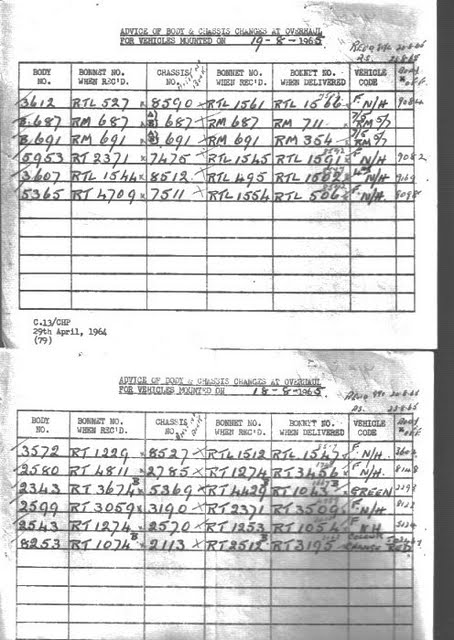 ADVICE OF BODY & CHASSIS CHANGES AT OVERHAUL
FOR VEHICLES MOUNTED ON 19-8-1965
BODY NO. BONNET NO. WHEN REC'D. CHASSIS NO. BONNET NO. WHEN REC'D. BONNET NO. WHEN DELIVERED VEHICLE CODE
3612 RTL 527 8590 RTL 1561 RTL 1566 F N/H
B.687 RM 687 B) 687 RM 687 RM 711 7/5 RM 5/7
B.691 RM 691 B) 691 RM 691 RM 354 7/5 RM 5/7
5953 RT 2371 7475 RTL 1545 RTL 1591 F N/H 9082
3607 RTL 1544 8512 RTL 495 RTL 1502 N/H
5365 RT 4709 7511 RTL 1554 RTL 506 F N/H
C.13/CHP
29th April, 1964
(79)
ADVICE OF BODY & CHASSIS CHANGES AT OVERHAUL
FOR VEHICLES MOUNTED ON 18-8-1965
BODY NO. BONNET NO. WHEN REC'D. CHASSIS NO. BONNET NO. WHEN REC'D. BONNET NO. WHEN DELIVERED VEHICLE CODE
3572 RT 1229 8527 RTL 1512 RTL 1547 F N/H
2580 RT 4811 2785 RT 1274 RT 3456 F N/H
2343 RT 3674 B 5369 RT 4429 B RT 1043 GREEN
2599 RT 3059 3190 RT 2371 RT 3509 F N/H
2543 RT 1274 2570 RT 1253 RT 1054 F KH
8253 RT 1074 B 2113 RT 2512 B RT 3195 COLOUR CHANGE RED